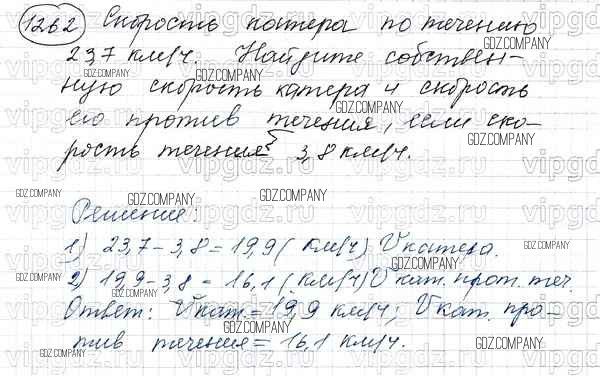 1262 Скорость катера по течению
23,7 км/ч. Найдите собствен-
ную скорость катера и скорость
его против течения, если ско-
рость течения 3,8 км/ч.
Решение:
1) 23,7 - 3,8 = 19,9 (км/ч) Vкатера.
2) 19,9 - 3,8 = 16,1 (км/ч) Vкат. прот. теч.
Ответ: Vкат. = 19,9 км/ч; Vкат. про-
тив течения = 16,1 км/ч.
GDZ.COMPANY
vipgdz.ru